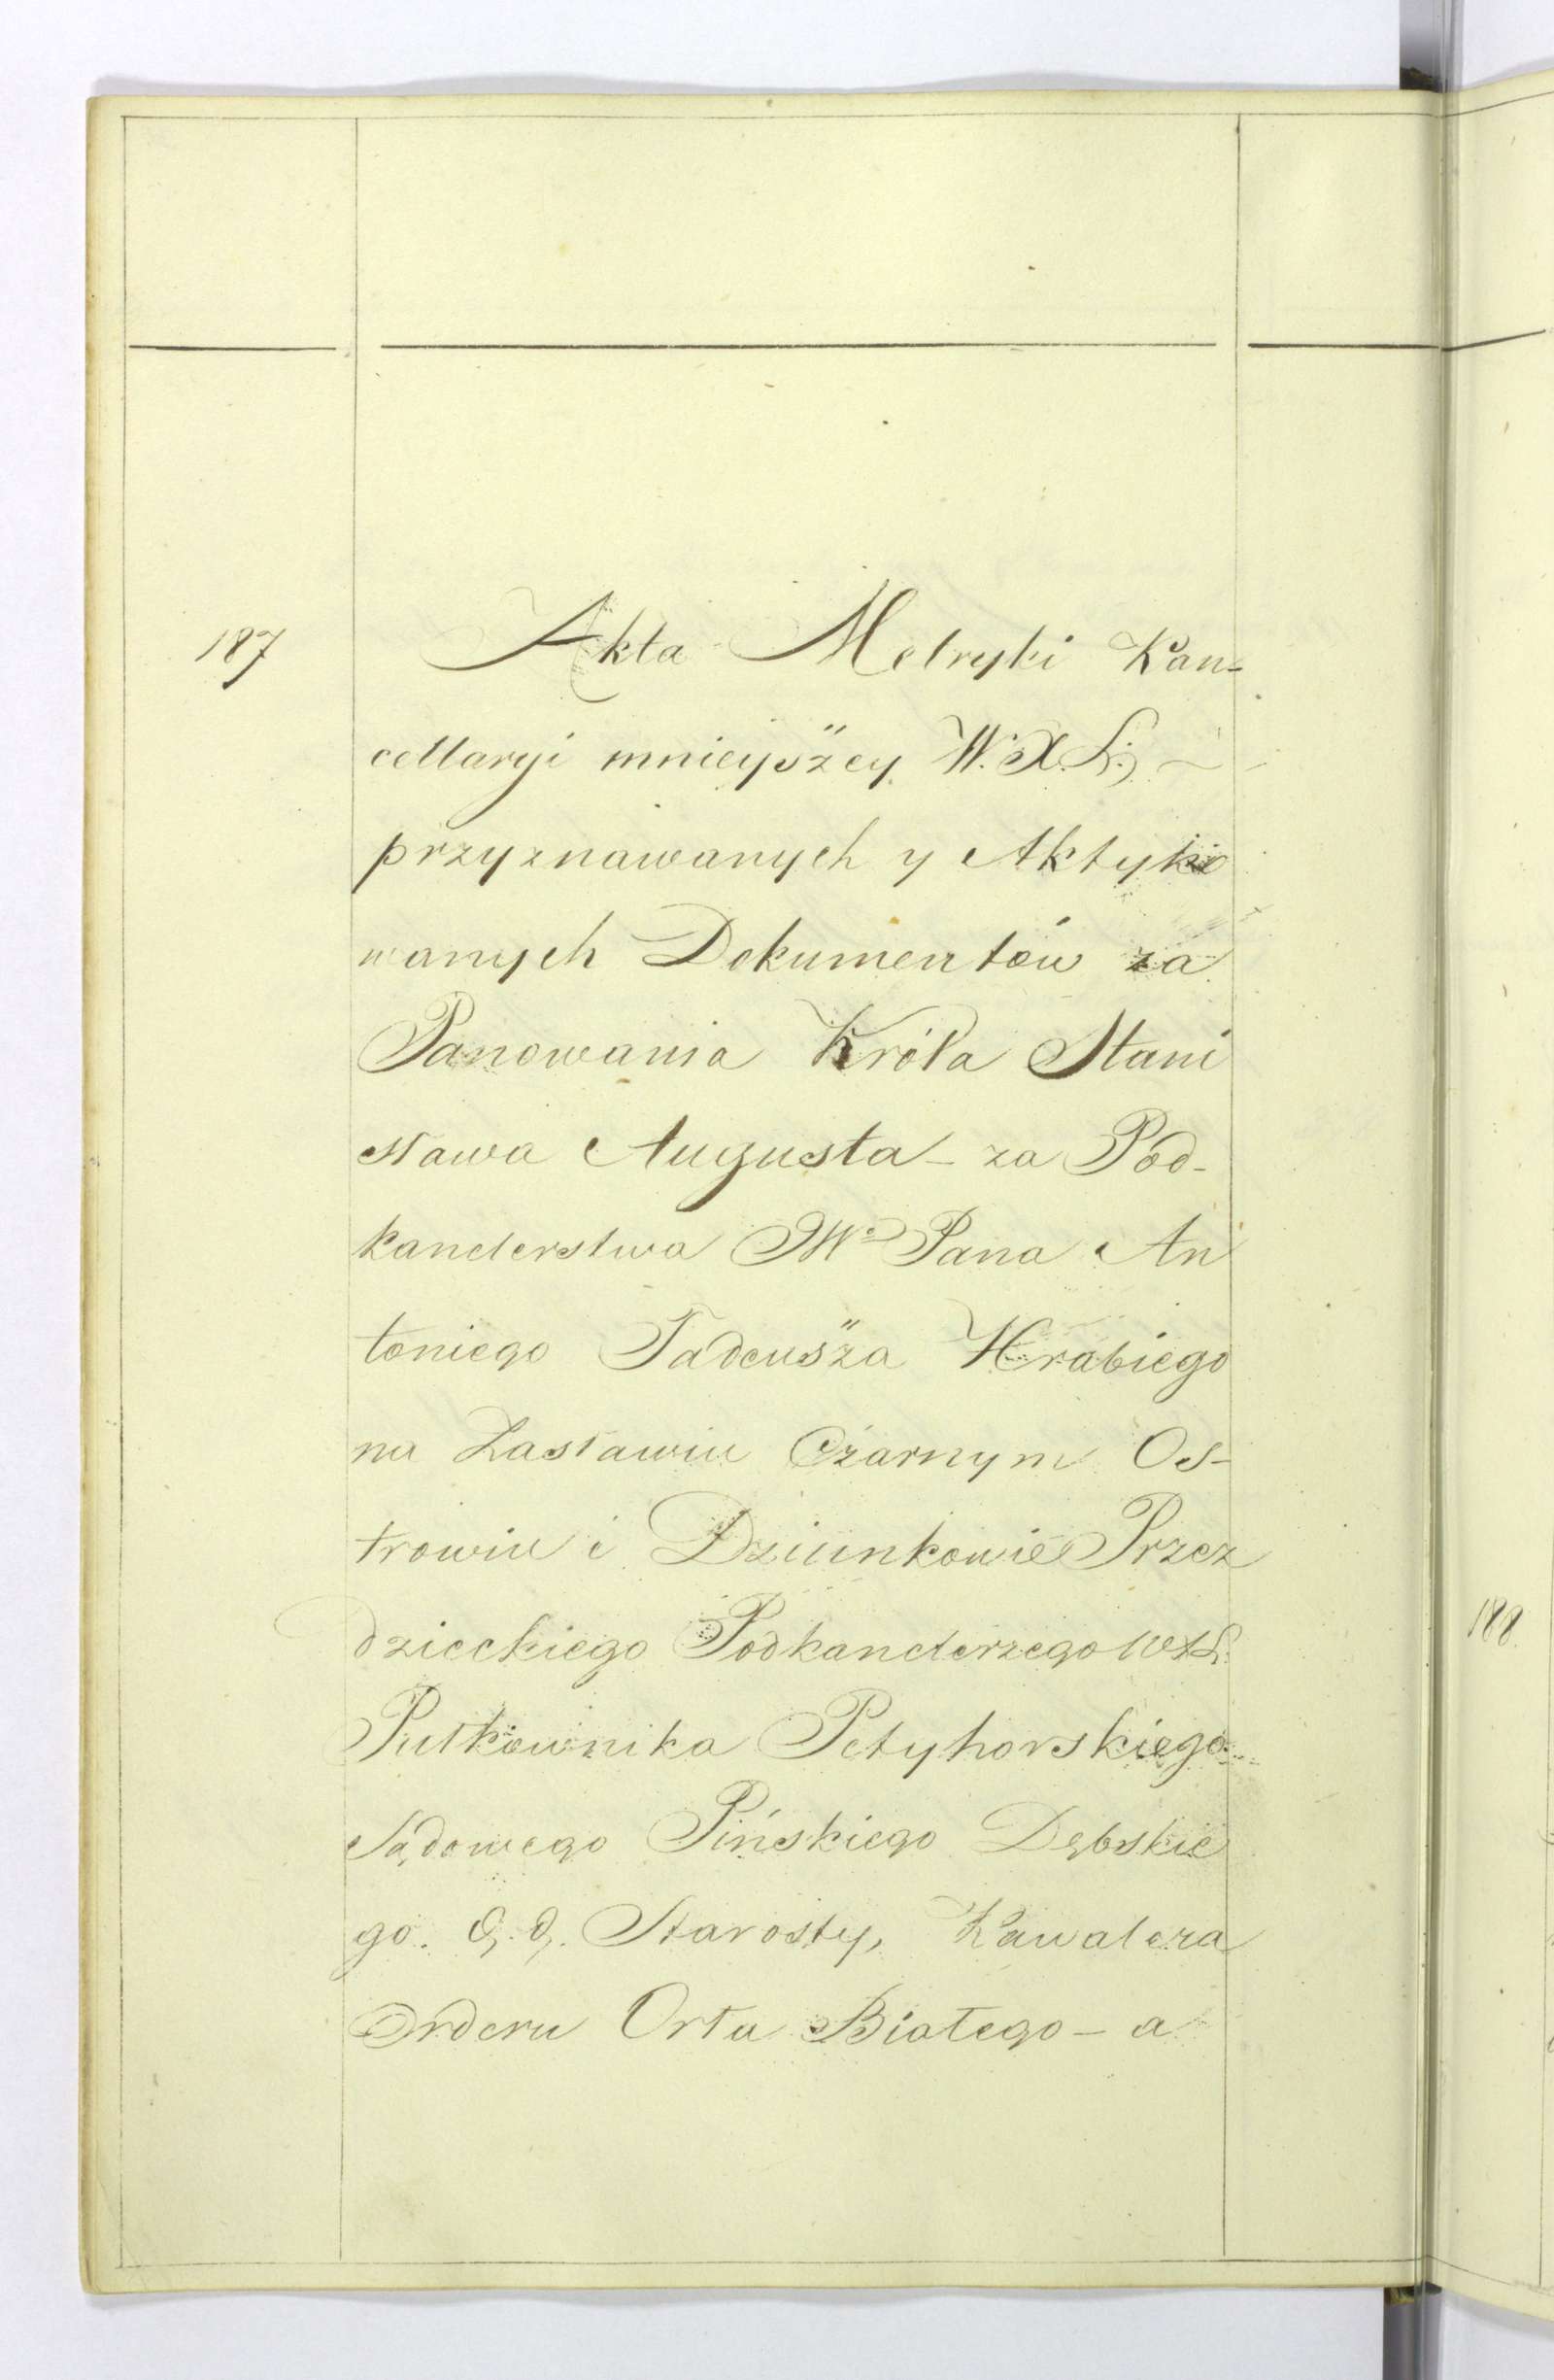 187
Akta Metryki Kan=
cellaryi mnieyszey W. X. L;
przyznawanych y Aktyko
wanych Dokumentów za
Panowania Króla Stani
sława Augusta – za Pod-
kanclerstwa JWº Pana An
toniego Tadeusza Hrabiego
na Zasławiu Czarnym Os-
trowiu i Dziunkowie Przez
dzieckiego Podkanclerzego WXL.
Pułkownika Petyhorskiego
Sądowego Pińskiego Dębskie
go. &. &. Starosty, Kawalera
Orderu Orła Białego – a
188.